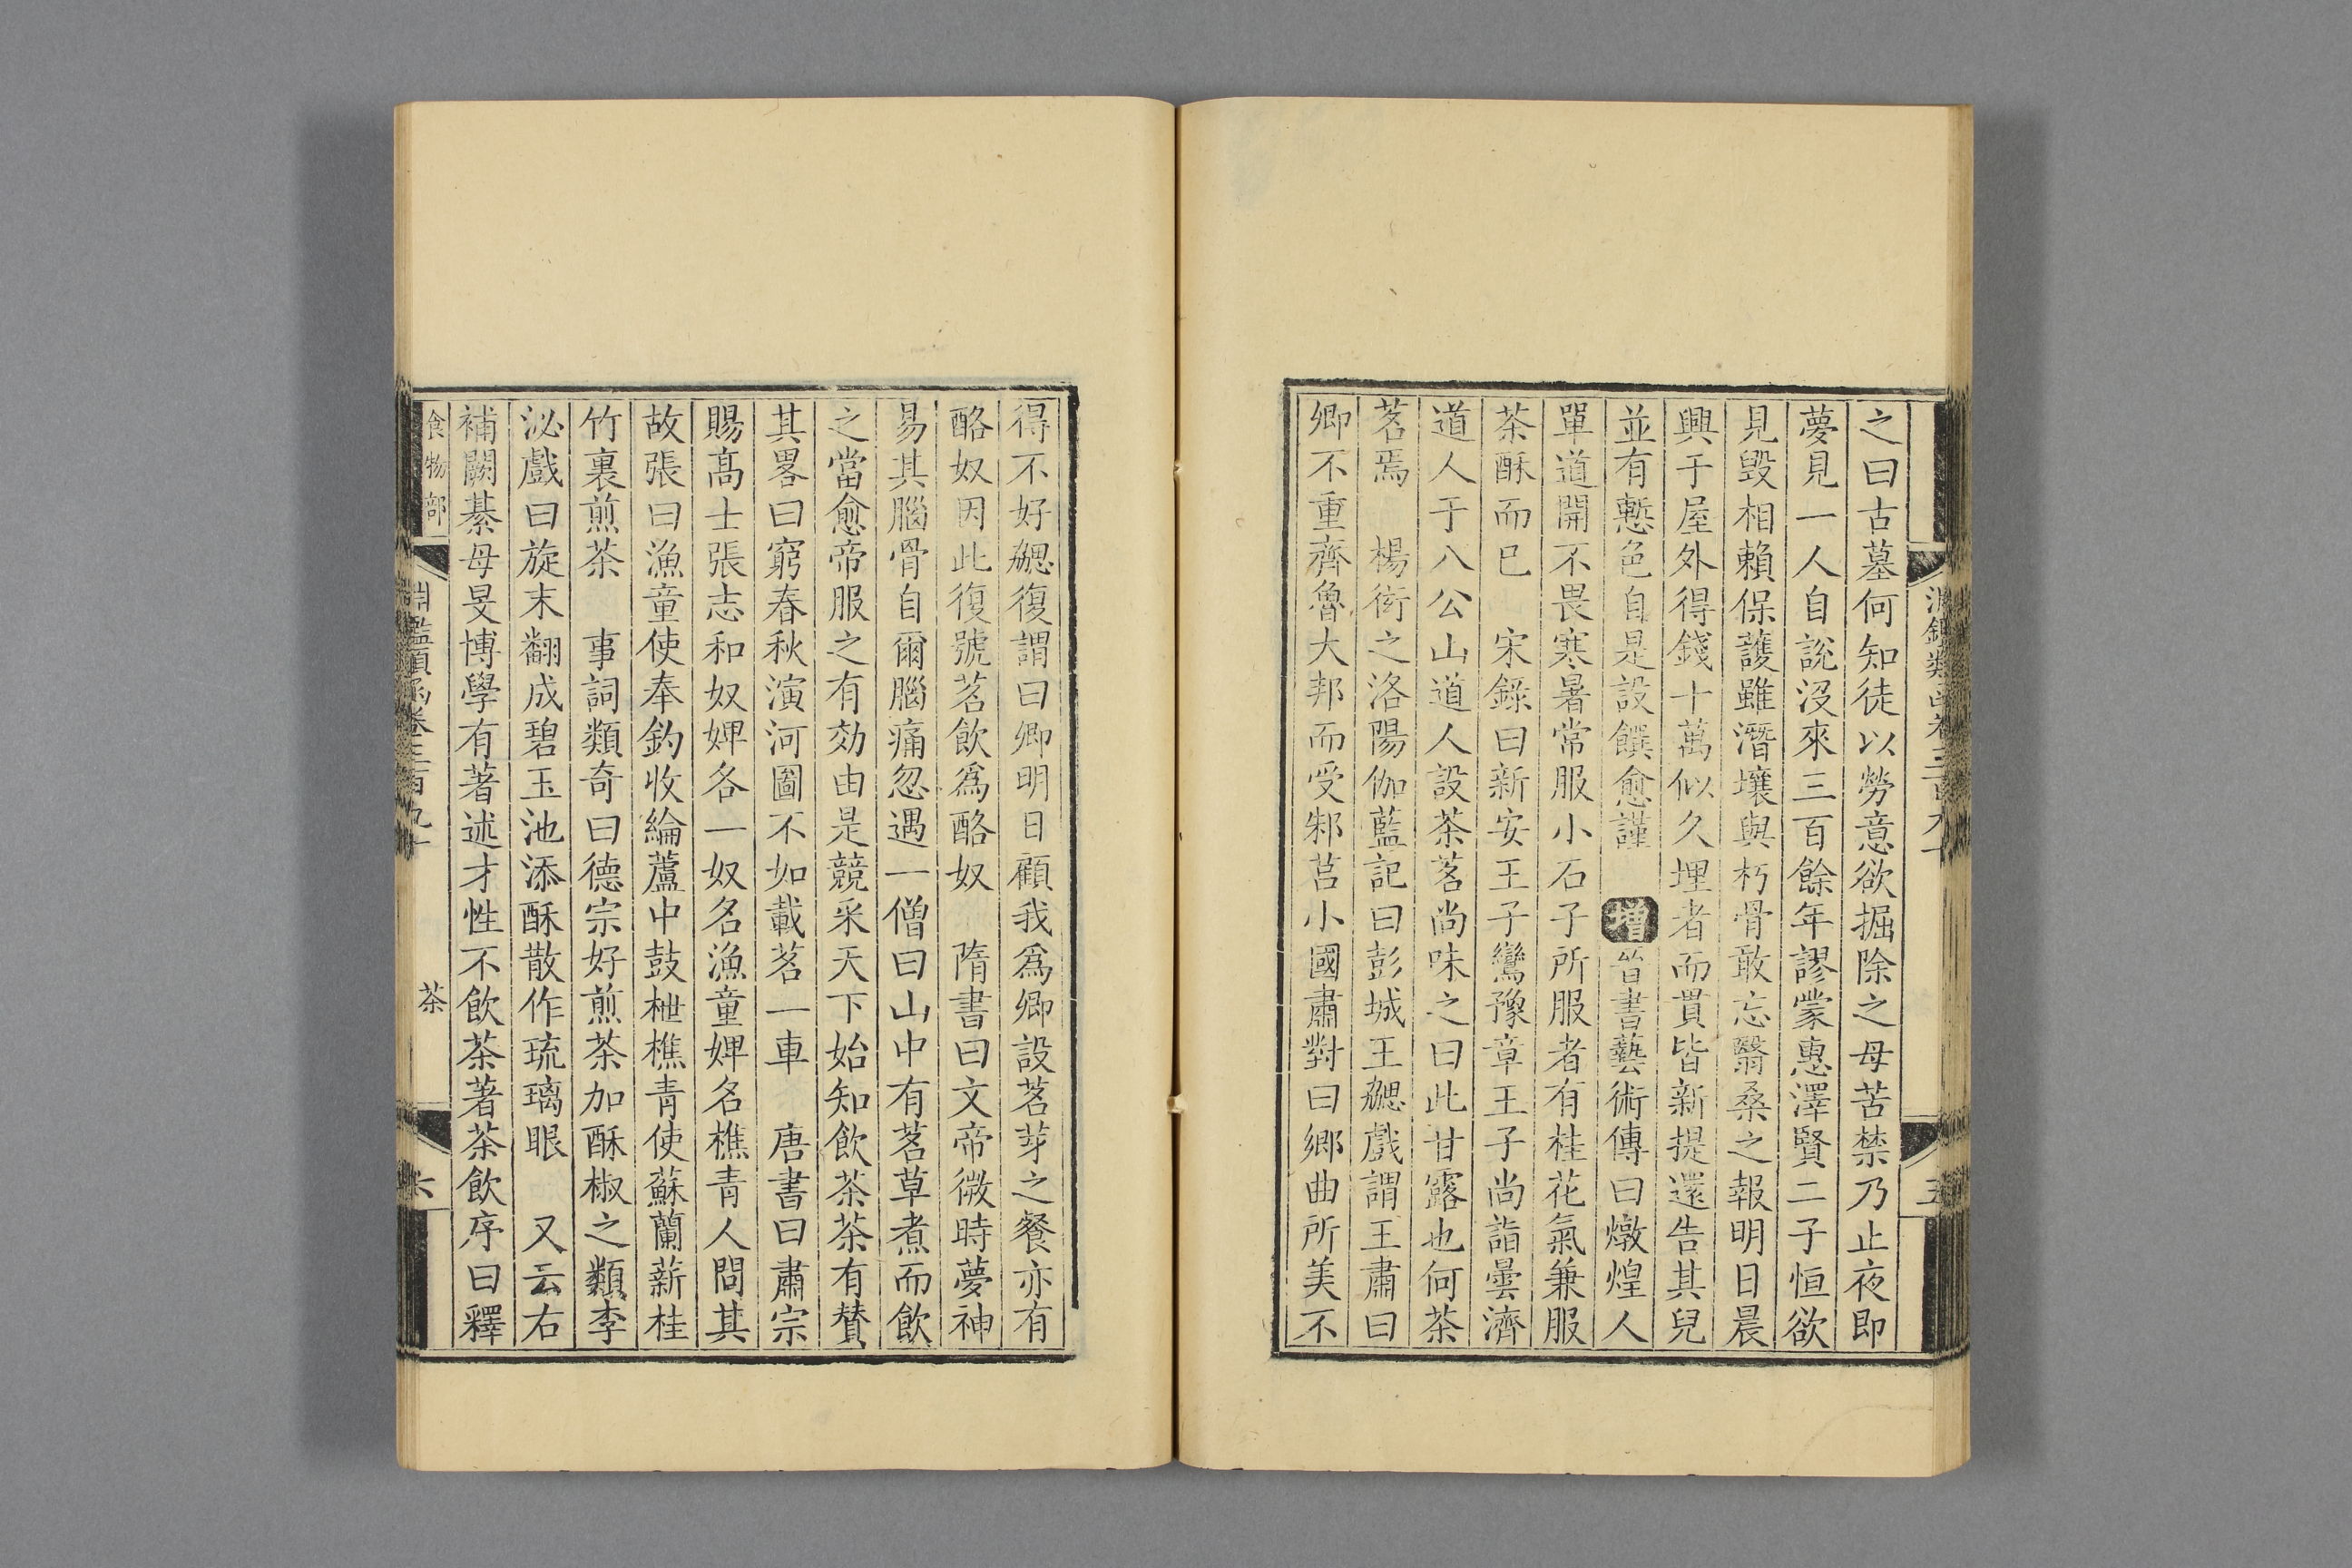 之曰古墓何知徒以勞意欲掘除之母苦禁乃止夜即
夢見一人自說沒來三百餘年謬蒙惠澤賢二子恒欲
見毀相賴保護雖潛壤與朽骨敢忘翳桑之報明日晨
興于屋外得錢十萬似久埋者而貫皆新提還告其兒
並有慙色自是設饌愈謹 增晉書藝術傳曰燉煌人
單道開不畏寒暑常服小石子所服者有桂花氣兼服
茶酥而已 宋錄曰新安王子鸞豫章王子尚詣曇濟
道人于八公山道人設茶茗尚味之曰此甘露也何茶
茗焉 楊衒之洛陽伽藍記曰彭城王勰戲謂王肅曰
卿不重齊魯大邦而受邾莒小國肅對曰鄉曲所美不
得不好勰復謂曰卿明日顧我為卿設茗芽之餐亦有
酪奴因此復號茗飲為酪奴 隋書曰文帝微時夢神
易其腦骨自爾腦痛忽遇一僧曰山中有茗草煮而飲
之當愈帝服之有効由是競采天下始知飲茶茶有贊
其畧曰窮春秋演河圖不如載茗一車 唐書曰肅宗
賜高士張志和奴婢各一奴名漁童婢名樵青人問其
故張曰漁童使奉釣收綸蘆中鼓枻樵青使蘇蘭薪桂
竹裏煎茶 事詞類奇曰德宗好煎茶加酥椒之類李
泌戲曰旋末翻成碧玉池添酥散作琉璃眼 又云右
補闕綦母旻博學有著述才性不飲茶著茶飲序曰釋
食物部 淵鑑類函卷三百九十 茶 六